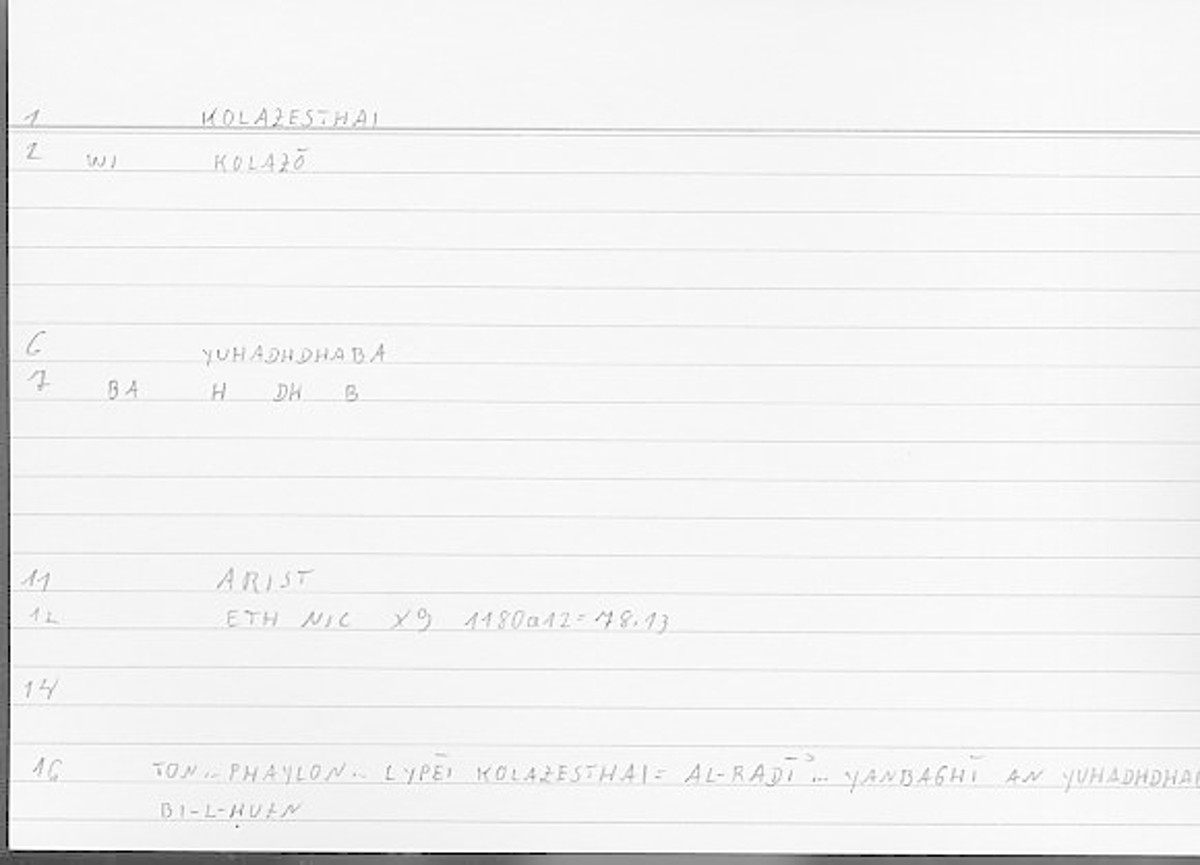 1 KOLAZESTHAI
2 WI KOLAZŌ
6 YUHADHDHABA
7 BA H DH B
11 ARIST
12 ETH NIC X9 1180a12=78.13
14
16 TON... PHAYLON... LYPĒI KOLAZESTHAI= AL-RADĪʾ ... YANBAGHĪ AN YUHADHDHAB
BI-L-ḤUZN